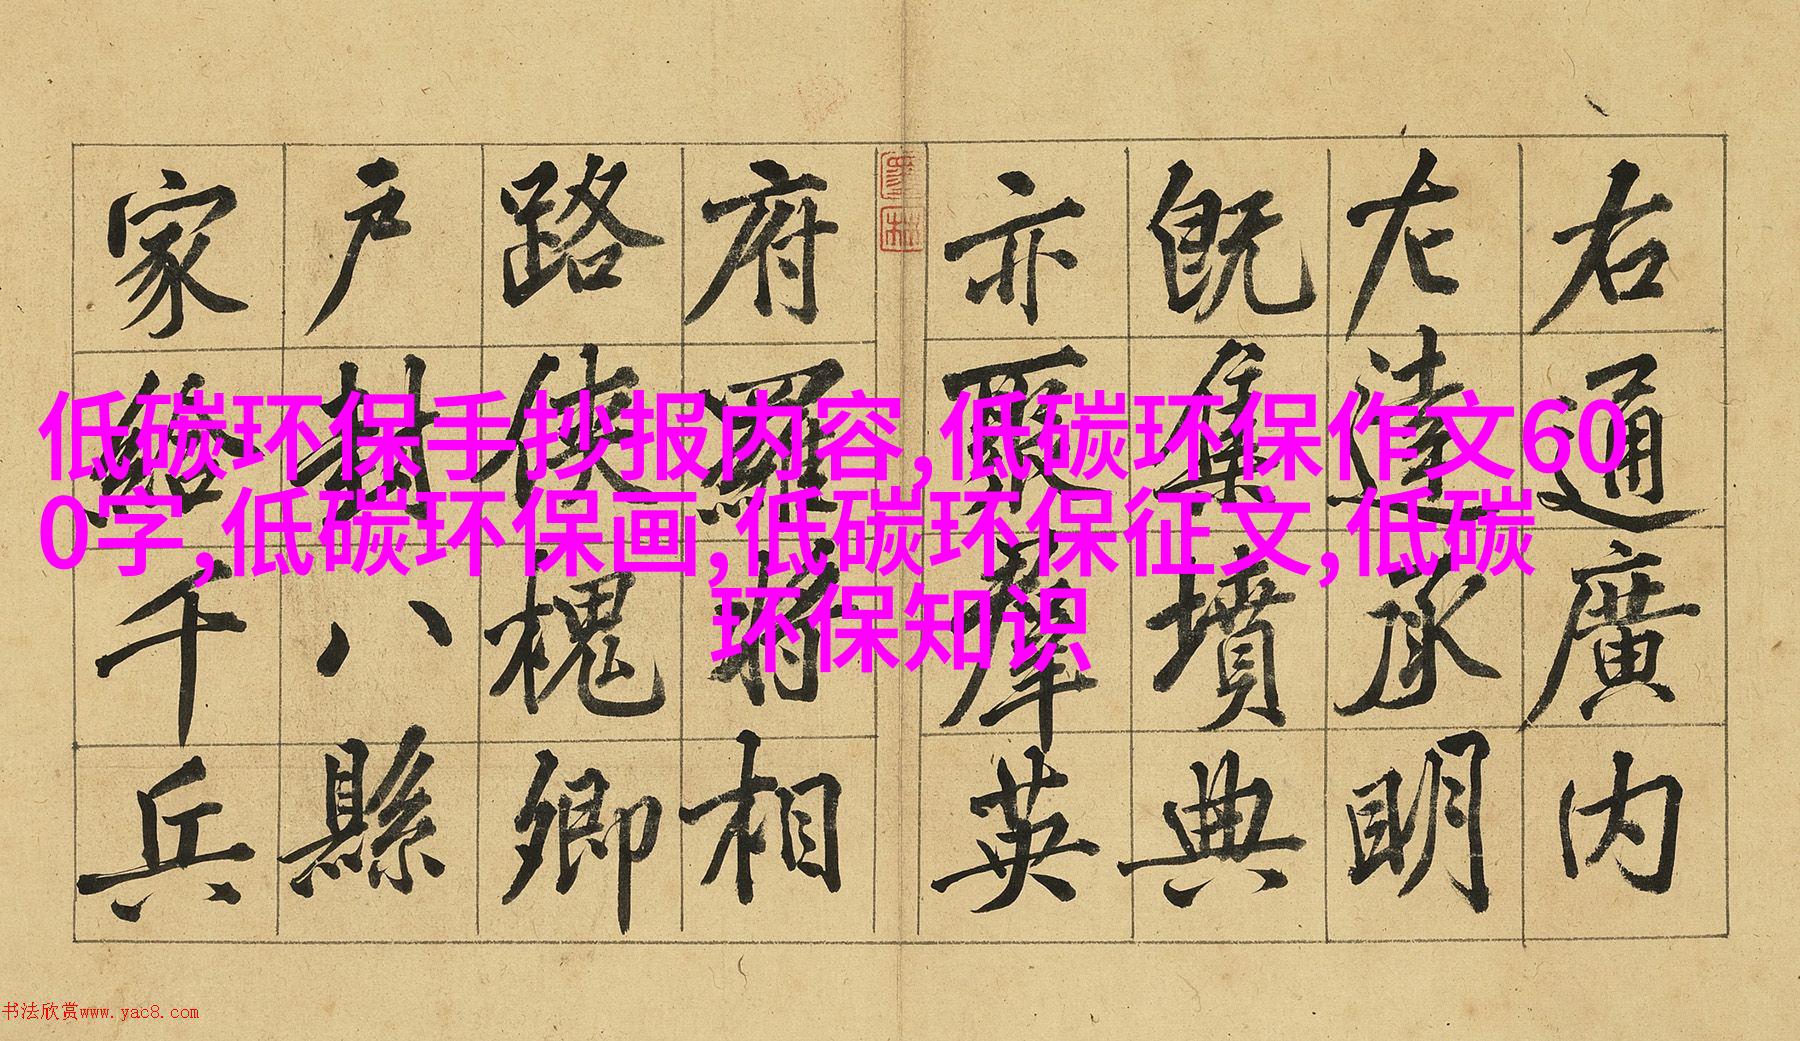 右通廣内
左達承明
既集墳典
亦聚羣英
府羅將相
路俠槐卿
戶封八縣
家給千兵
低碳环保手抄报内容,低碳环保作文60
0字,低碳环保画,低碳环保征文,低碳
环保知识
书法欣赏www.yac8.com